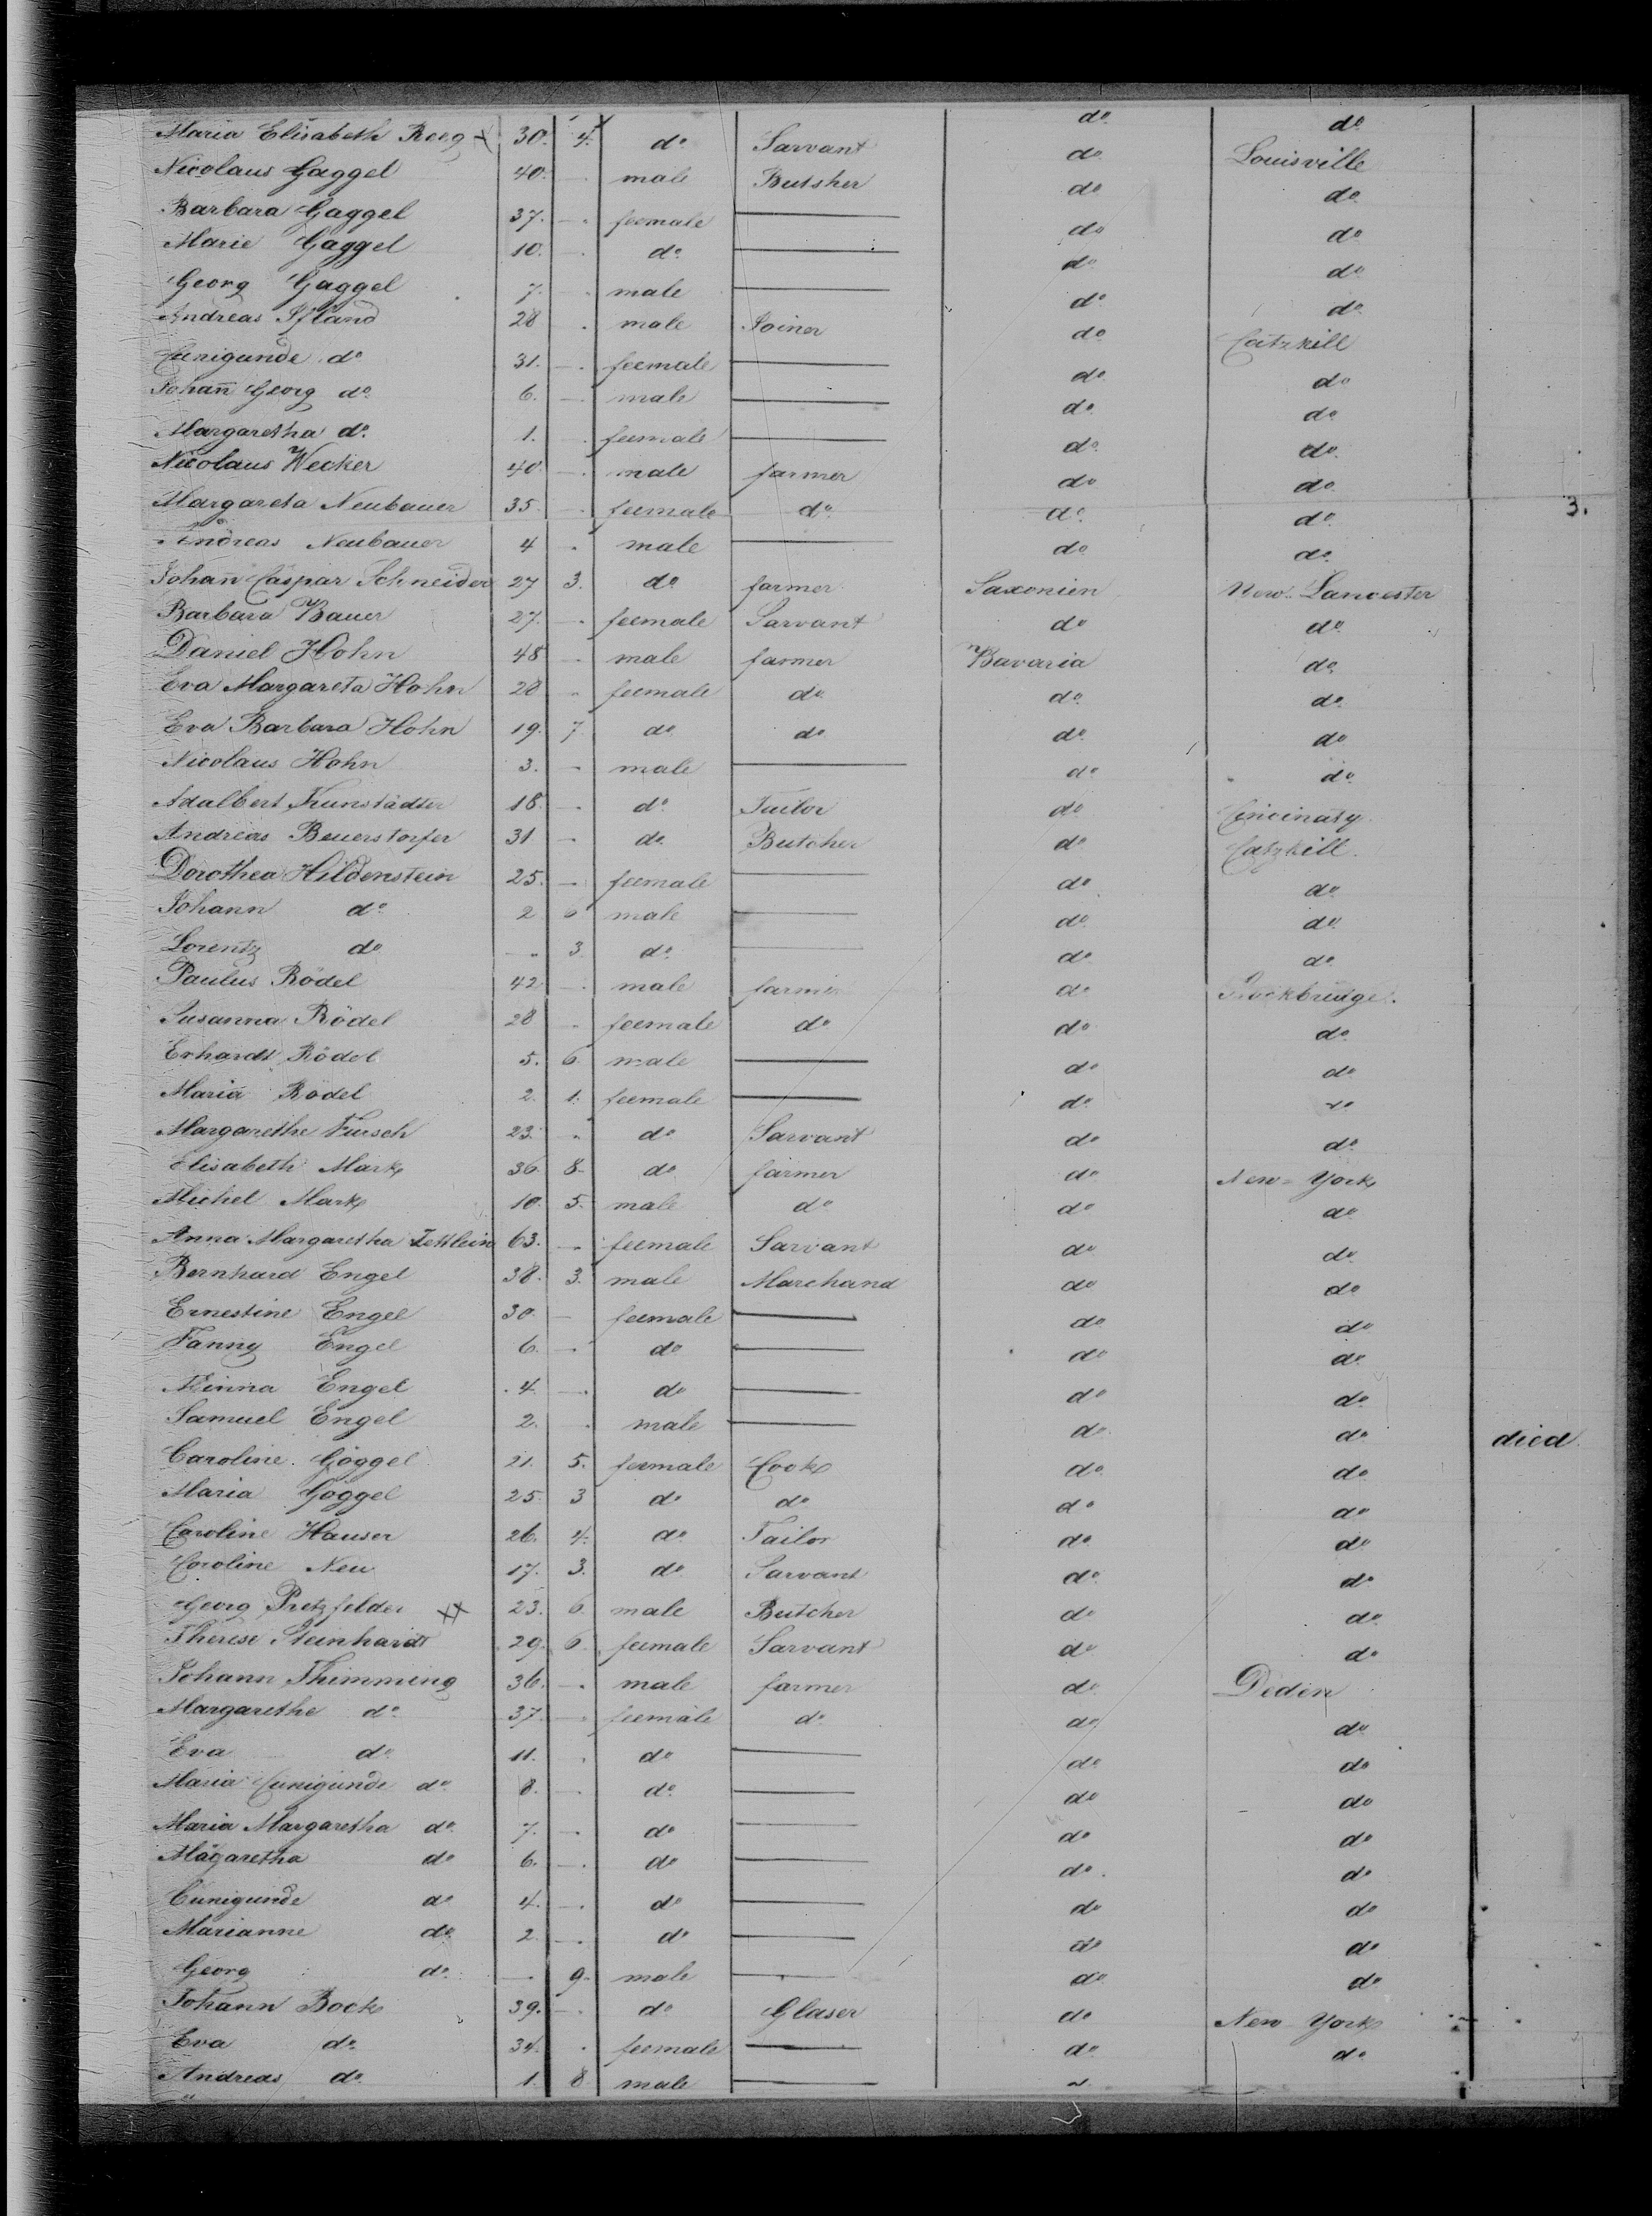 Maria Elisabeth Reeg 30. 4. do Sarvant do do
Nicolaus Gaggel 40. - male Butsher do Louisville
Barbara Gaggel 37. - feemale — do do
Marie Gaggel 10. - do — do do
Georg Gaggel 7. - male — do do
Andreas Ifland 28 - male Joiner do do
Cunigunde do 31. - feemale — do Catzkill
Johan̅ Georg do 6. - male — do do
Margaretha do 1. - feemale — do do
Nicolaus Wecker 40 - male farmer do do
Margareta Neubauer 35. - feemale do do do 3.
Andreas Neubauer 4 - male — do do
Johan̅ Caspar Schneider 27 3. do farmer Saxonien New Lancester
Barbara Bauer 27. - feemale Sarvant do do
Daniel Hohn 48 - male farmer Bavaria do
Eva Margareta Hohn 28 - feemale do do do
Eva Barbara Hohn 19. 7. do do do do
Nicolaus Hohn 3. - male — do do
Adalbert Kunstädter 18. - do Tailor do Cincinaty
Andreas Beuerstorfer 31 - do Butcher do Catzkill.
Dorothea Hildenstein 25. - feemale — do do
Johann do 2 6 male — do do
Lorentz do - 3 do — do do
Paulus Rödel 42 - male farmer do Rockbridge.
Susanna Rödel 28 - feemale do do do
Erhardt Rödel 5. 6. male — do do
Maria Rödel 2. 1. feemale — do do
Margarethe Fursch 23. - do Sarvant do do
Elisabeth Mark 36 8. do farmer do New-York
Michel Mark 10. 5. male do do do
Anna Margaretha Zettlein 63. - feemale Sarvant do do
Bernhard Engel 38. 3. male Marchand do do
Ernestine Engel 30. - feemale — do do
Fanny Engel 6. - do — do do
Minna Engel 4. - do — do do
Samuel Engel 2. - male — do do died
Caroline Göggel 21. 5. feemale Cook do do
Maria Göggel 25. 3 do do do do
Caroline Hauser 26. 4. do Tailor do do
Caroline Neu 17. 3. do Sarvant do do
Georg Pretzfelder xx 23. 6. male Butcher do do
Therese Steinhardt 29. 6. feemale Sarvant do do
Johann Thimming 36. - male farmer do Deden
Margarethe do 37. - feemale do do do
Eva do 11. - do — do do
Maria Cunigunde do 8. - do — do do
Maria Margaretha do 7. - do — do do
Magaretha do 6. - do — do do
Cunigunde do 4. - do — do do
Marianne do 2. - do — do do
Georg do - 9. male — do do
Johann Bock 39. - do Glaser do New York
Eva do 34. - feemale — do do
Andreas do 1. 8 male —